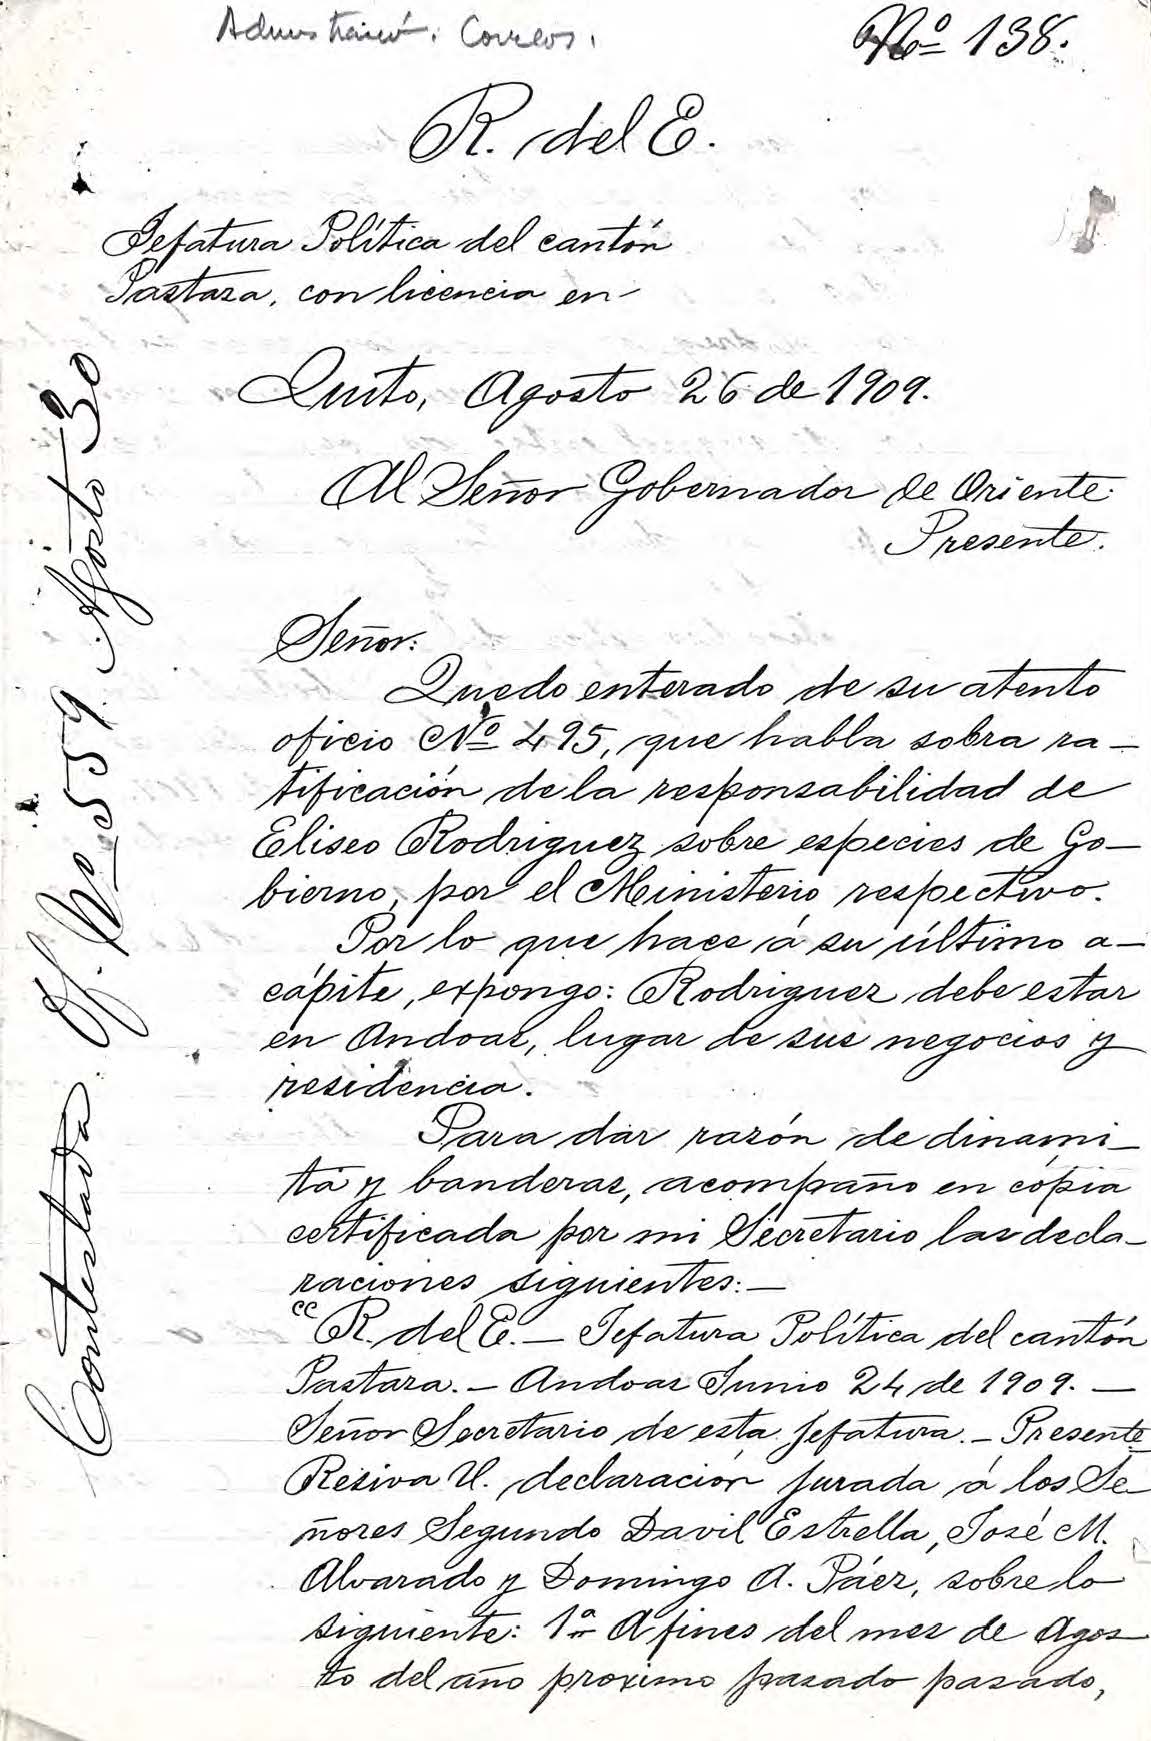 Administración. Correos.
Nº 138.
R. del E.
Jefatura Política del cantón
Pastaza, con licencia en
Quito, Agosto 26 de 1909.
Al Señor Gobernador de Oriente.
Presente.
Señor:
Quedo enterado de su atento
oficio Nº 495, que habla sobra ra–
tificación de la responsabilidad de
Eliseo Rodriguez sobre especies de Go–
bierno, por el Ministerio respectivo.
Por lo que hace á su último a–
cápite, expongo: Rodriguez debe estar
en Andoas, lugar de sus negocios y
residencia.
Para dar razón de dinami–
ta y banderas, acompaño en cópia
certificada por mi Secretario las decla–
raciones siguientes:–
"R. del E. – Jefatura Política del cantón
Pastaza. – Andoas Junio 24 de 1909. –
Señor Secretario de esta Jefatura. – Presente
Resiva U. declaración jurada á los Se–
ñores Segundo Davil Estrella, José M.
Alvarado y Domingo A. Páez, sobre lo
siguiente: 1ª A fines del mes de Agos–
to del año proximo pasado pasado,
Contestada. Of. Nº 559. Agosto 30